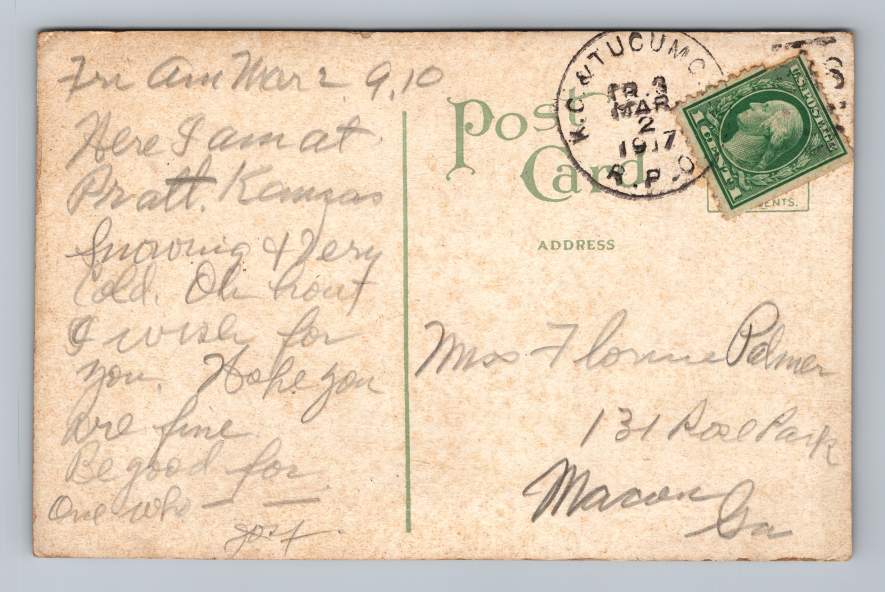 Fri Am Mar 2 9,10
Here I am at
Pratt. Kansas
Snowing & Very
Cold. Oh how
I wish for
you. Hope you
are fine.
Be good for
One who — —
Post Card
ADDRESS
K.C. & TUCUMC
TR. 3
MAR
2
1917
R.P.O
U.S. POSTAGE
1 CENT 1
CENTS.
Miss Florine Palmer
131 Rose Park
Macon
Ga